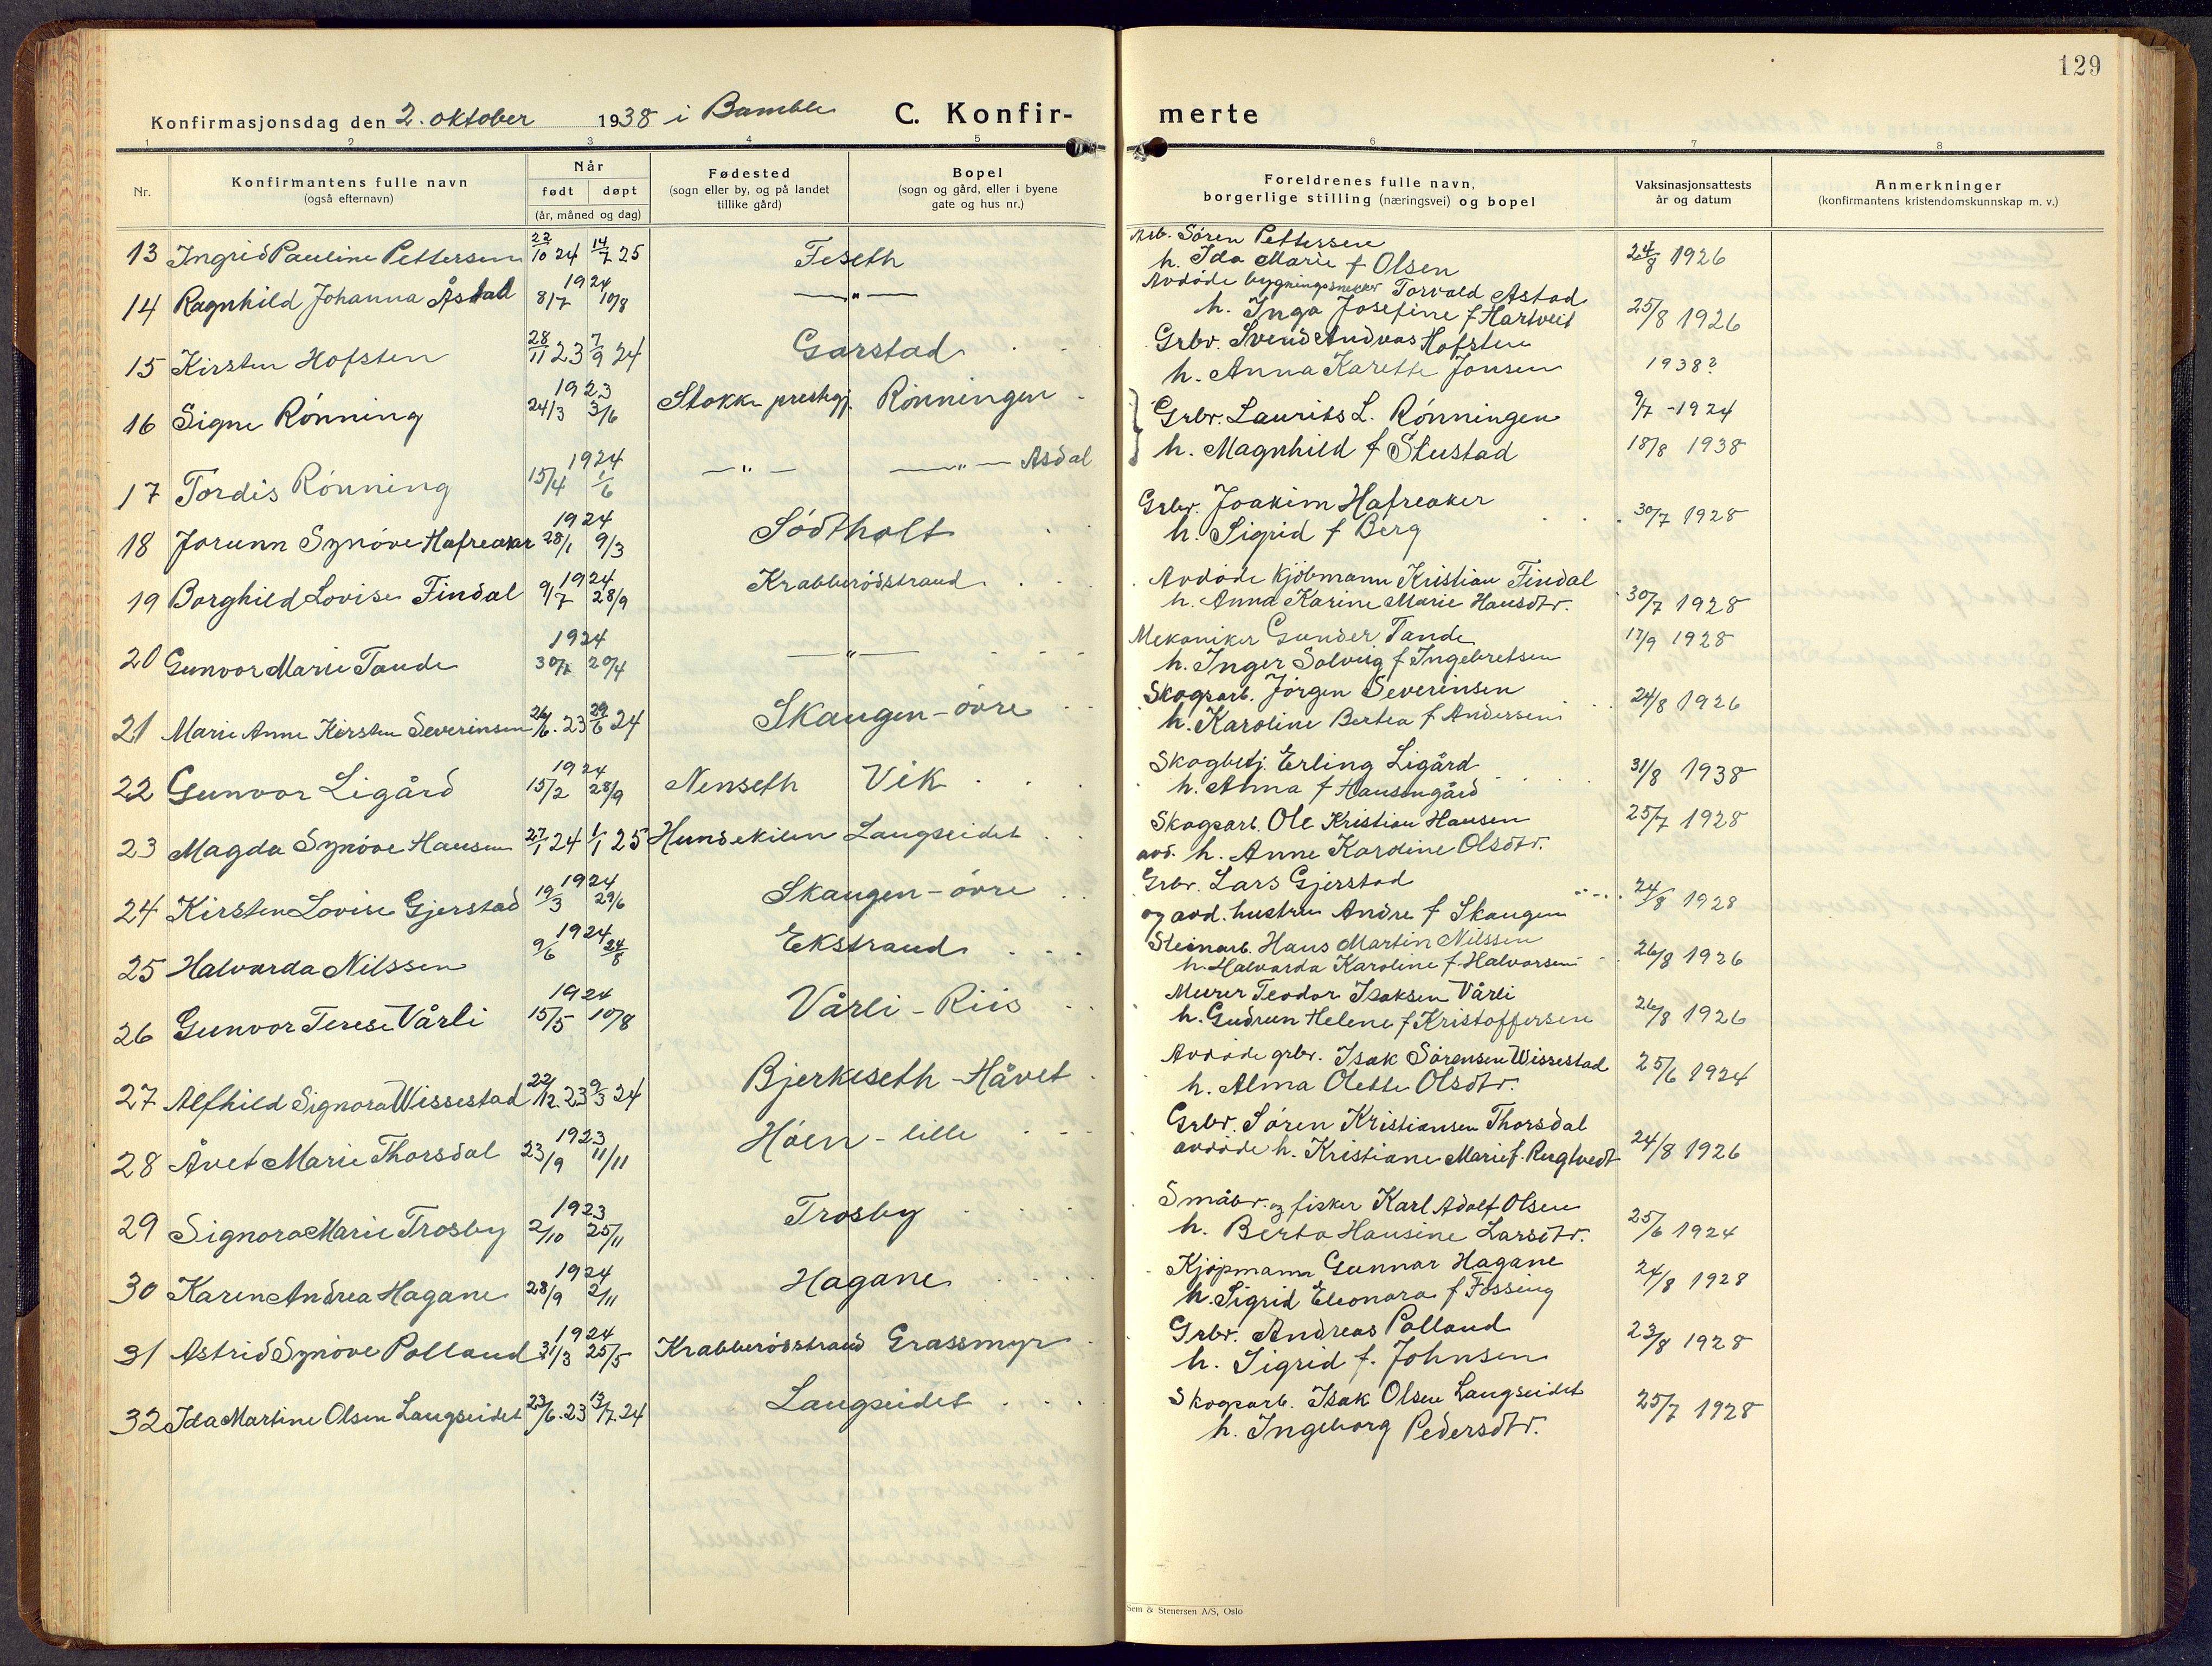 129
Konfirmasjonsdag den 2. oktober 1938 i Bamble C. Konfir- merte
1 2 3 4 5 6 7 8
Nr. Konfirmantens fulle navn (også efternavn) Når født døpt (år, måned og dag) Fødested (sogn eller by, og på landet tillike gård) Bopel (sogn og gård, eller i byene gate og hus nr.) Foreldrenes fulle navn, borgerlige stilling (næringsvei) og bopel Vaksinasjonsattests år og datum Anmerkninger (konfirmantens kristendomskunnskap m. v.)
13 Ingrid Pauline Pettersen 22/10 24 14/7 25 Feseth Arb. Sören Pettersen h. Ida Marie f Olsen 24/8 1926
14 Ragnhild Johanna Åstad 1924 8/7 10/8 —"— Avdöde bygningssnekker Torvald Åstad h. Inga Josefine f Hartveit 25/8 1926
15 Kirsten Hofsten 28/11 23 7/9 24 Garstad Grbr. Svend Andreas Hofsten h. Anna Karette Jonsen 1938?
16 Signe Rönning 1923 24/3 3/6 Stokke prestegj. Rönningen Grbr. Laurits L. Rönningen 9/7 -1924
17 Tordis Rönning 1924 15/4 1/6 —"— —"— Åsdal h. Magnhild f Stustad 18/8 1938
18 Jorunn Synöve Hafreaker 1924 28/1 9/3 Södtholt Grbr. Joakim Hafreaker h. Sigrid f Berg 30/7 1928
19 Borghild Lovise Findal 1924 9/7 28/9 Krabberödstrand Avdöde kjöbmann Kristian Findal h. Anna Karine Marie Hansdtr. 30/7 1928
20 Gunvor Marie Tande 1924 20/4 —"— Mekaniker Gunder Tande h. Inger Solveig f Ingebretsen 17/9 1928
21 Marie Anne Kirsten Severinsen 26/6. 23 29/6 24 Skaugen-övre Skogsarb. Jörgen Severinsen h. Karoline Bertea f Andersen 24/8 1926
22 Gunvor Ligård 1924 15/2 28/9 Nenseth Vik Skogbetj. Erling Ligård h. Anna f Haugsgård 31/8 1938
23 Magda Synöve Hansen 27/1 24 1/1 25 Hundekilen Langseidet Skogsarb. Ole Kristian Hansen avd. h. Anne Karoline Olsdtr. 25/7 1928
24 Kirsten Lovise Gjerstad 1924 19/3 29/6 Skaugen-övre Grbr. Lars Gjerstad og avd. hustru Andre f Skaugen 24/8 1928
25 Halvarda Nilssen 1924 9/6 24/8 Ekstrand Steinarb. Hans Martin Nilssen h. Halvarda Karoline f. Halvorsen 26/8 1926
26 Gunvor Terese Vårli 1924 15/5 10/8 Vårli-Riis Murer Teodor Isaksen Vårli h. Gudrun Helene f Kristoffersen 26/8 1926
27 Alfhild Signora Wissestad 22/12. 23 9/3 24 Bjerkeseth-Håvet Avdöde grbr. Isak Sörensen Wissestad h. Alma Olette Olsdtr. 25/6 1924
28 Åvet Marie Thorsdal 1923 23/9 11/11 Höen-lille Grbr. Sören Kristiansen Thorsdal avdöde h. Kristiane Marie f. Rugtvedt 24/8 1926
29 Signora Marie Trosby 1923 2/10 25/11 Trosby Småbr. og fisker Karl Adolf Olsen h. Berta Hansine Larsdtr. 25/6 1924
30 Karen Andrea Hagane 1924 28/9 2/11 Hagane Kjöpmann Gunnar Hagane h. Sigrid Eleonora f Fossing 24/8 1928
31 Astrid Synöve Polland 1924 31/3 25/5 Krabberödstrand Grassmyr Grbr. Andreas Polland h. Sigrid f. Johnsen 23/8 1928
32 Ida Martine Olsen Langseidet 23/6. 23 13/7. 24 Langseidet Skogsarb. Isak Olsen Langseidet h. Ingeborg Pedersdtr. 25/7 1928
Sem & Stenersen A/S, Oslo